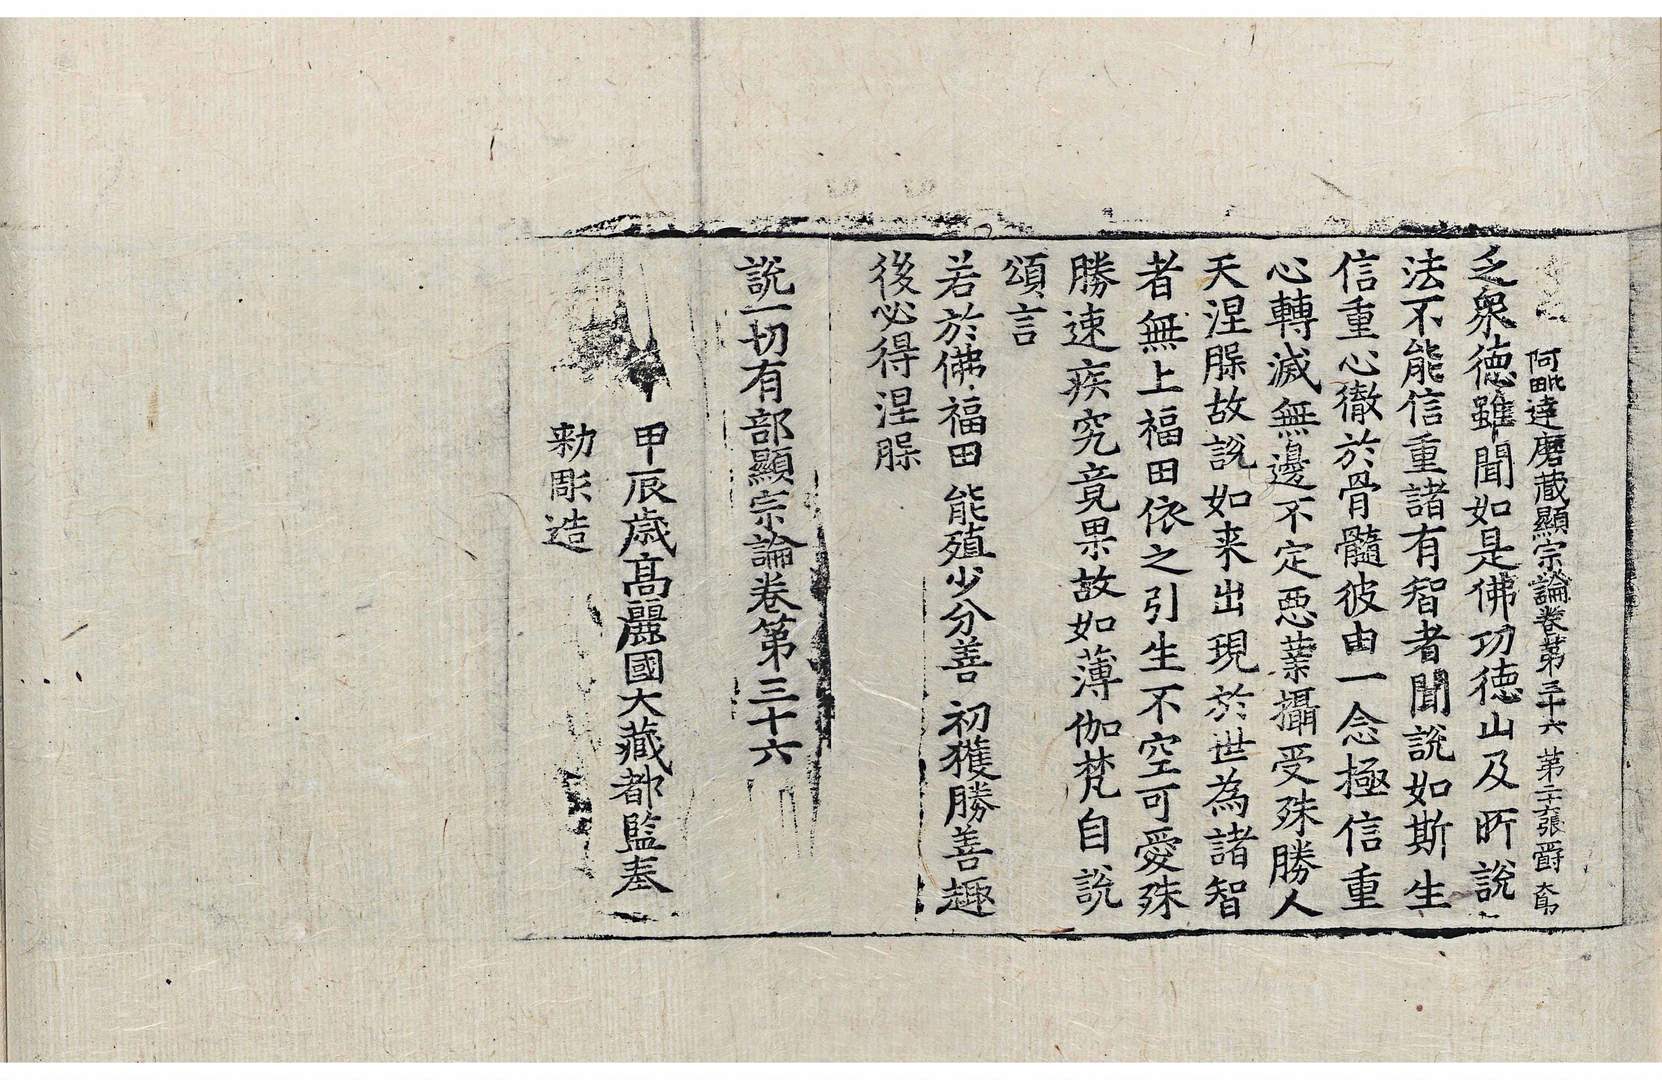 阿毗達磨蔵顯宗論卷第三十六 第二十六張 爵
乏衆德雖聞如是佛功徳山及所說
法不能信重諸有智者聞說如斯生
信重心徹於骨髓彼由一念極信重
心轉滅無邊不定惡業攝受殊勝人
天涅脲故說如来出現於世為諸智
者無上福田依之引生不空可愛殊
勝速疾究竟果故如薄伽梵自說
頌言
若於佛福田 能殖少分善 初獲勝善趣
後必得涅脲
說一切有部顯宗論卷第三十六
甲辰歳髙麗國大藏都監奉
勑彫造